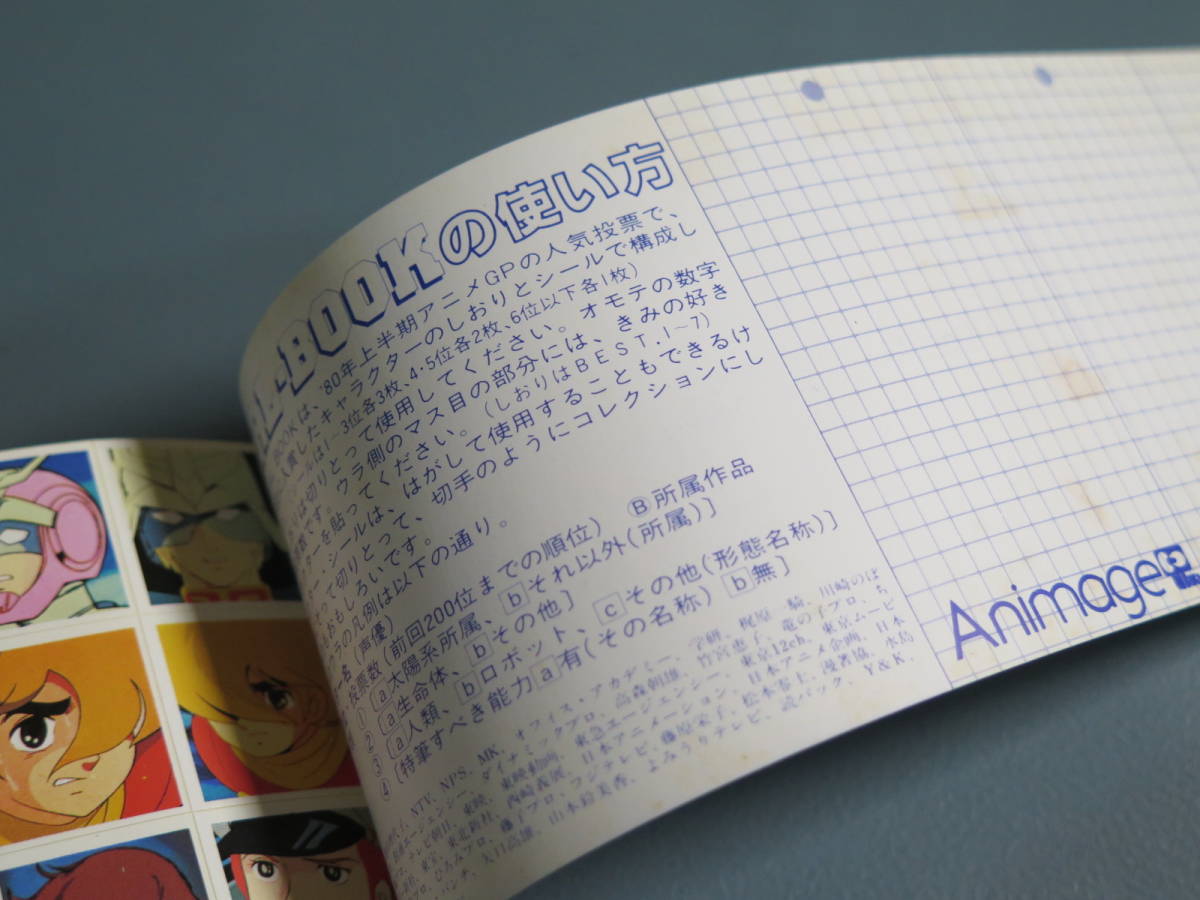 BOOKの使い方
BOOKは、'80年上半期アニメGPの人気投票で、
賞したキャラクターのしおりとシールで構成し
ールは1〜3位各3枚、4・5位各2枚、6位以下各1枚)
は切りとって使用してください。オモテの数字
票数です。ウラ側のマス目の部分には、きみの好き
ーを貼ってください。(しおりはBEST.1〜7)
シールは、はがして使用することもできるけ
って切りとって、切手のようにコレクションにし
おもしろいです。
ラの凡例は以下の通り。
ー名(声優)
投票数(前回2000位までの順位) Ⓑ所属作品
① a太陽系所属、bそれ以外(所属)]
② a生命体、bその他]
③ a人類、bロボット、cその他(形態名称)]
④ (特筆すべき能力a有(その名称) b無]
NTV、NPS、MK、オフィス・アカデミー、学研、梶原一騎、川崎のぼ
エージェンシー、ダイナミックプロ、高森朝雄、竹宮恵子、竜の子プロ、ち
テレビ朝日、東映、東映動画、東急エージェンシー、東京12ch、東京ムービー
東宝、東北新社、西崎義展、日本アニメーション、日本アニメ企画、日本
ひろみプロ、藤子プロ、フジテレビ、藤原栄子、松本零士、漫画協、水島
パンチ、矢口高雄、山本絵美香、よみうりテレビ、Y&K.
Animage